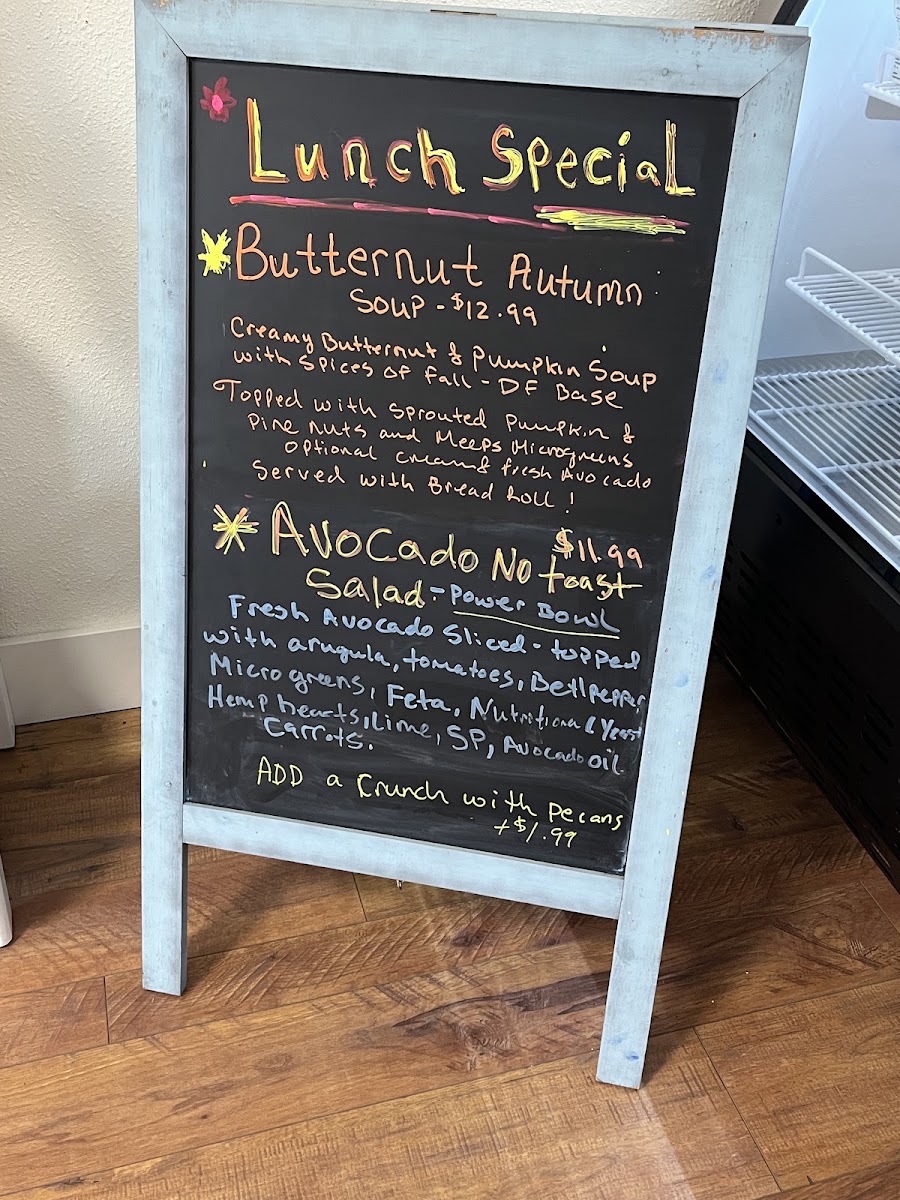 Lunch Special
Butternut Autumn
Soup - $12.99
Creamy Butternut & Pumpkin Soup
with Spices of Fall - DF Base
Topped with Sprouted Pumpkin &
Pine nuts and Meeps Microgreens
optional cream & fresh Avocado
Served with Bread Roll!
Avocado No toast $11.99
Salad - Power Bowl
Fresh Avocado Sliced - topped
with arugula, tomatoes, Bellpepper
Microgreens, Feta, Nutritional Yeast
Hemp hearts, Lime, SP, Avocado oil
Carrots.
ADD a Crunch with pecans
+$1.99